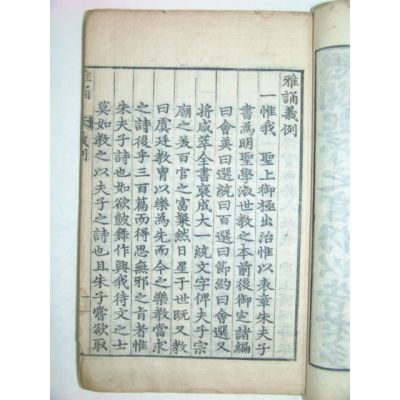 雅誦義例
一惟我 聖上御極出治惟以表章朱夫子
書為明聖學淑世教之本前後御定諸編
曰會英曰選統曰百選曰節約曰會選又
將咸萃全書裒成大一統文字俾夫子宗
廟之美百官之富粲然日星于世既又教
曰虞廷教冑以樂為先而今之樂教當求
之詩後乎三百篇而得思無邪之旨者惟
朱夫子詩也如欲皷舞作興我待文之士
莫如教之以夫子之詩也且朱子嘗欲取
雅誦
義例
一